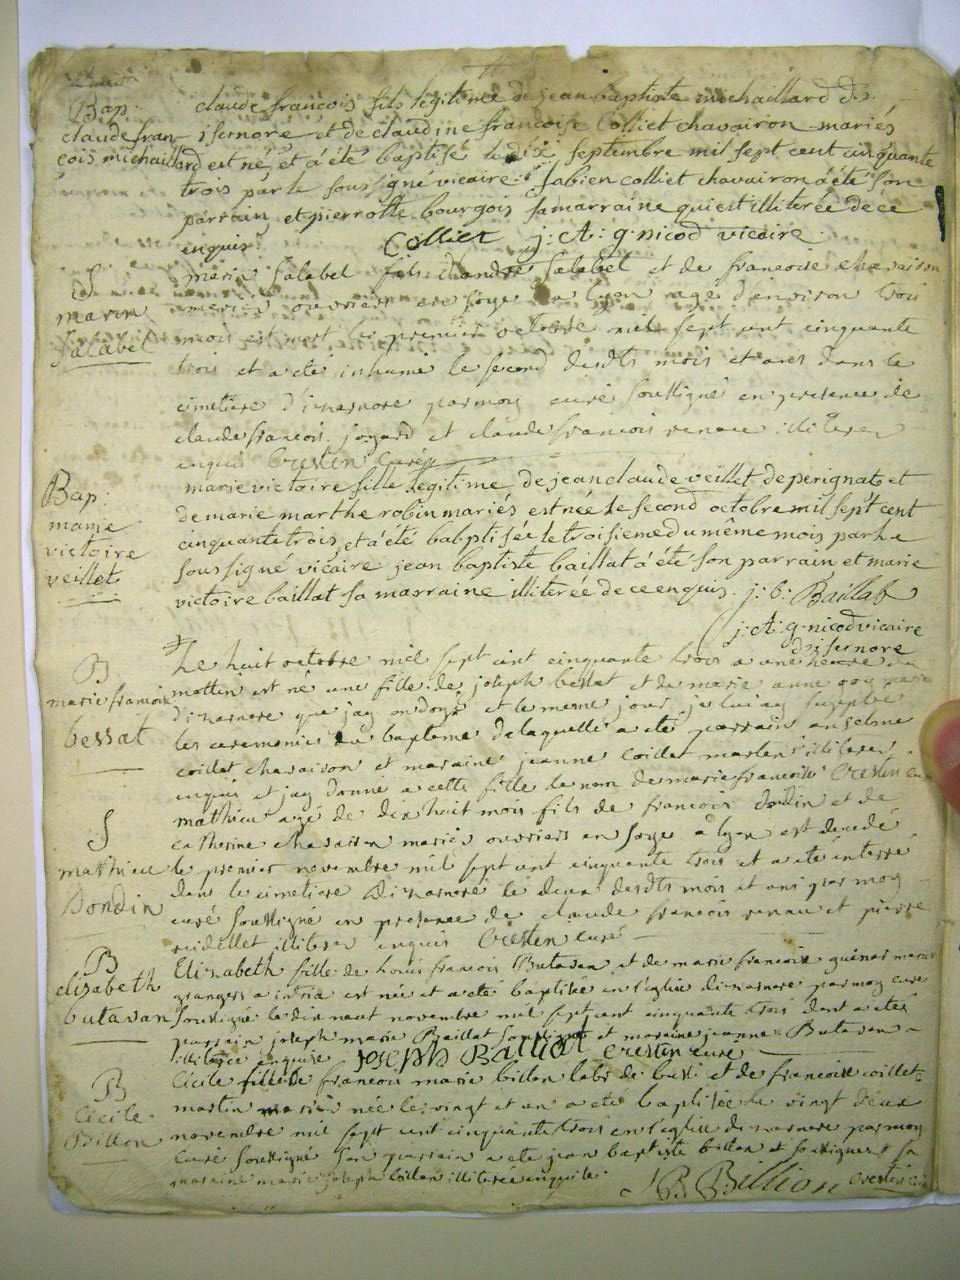 Bap:
claude fran-
cois michaillard
claude francois fils légitime de jean baptiste michaillard d'i-
sernore et de claudine francoise Colliet chavairon mariés
est né et a été baptisé le dix septembre mil sept cent cinquante
trois par le soussigné vicaire. fabien colliet chavairon a été son
parrain et pierrotte bourgois sa marraine qui est illiterée de ce
enquis. Colliet j: A: g. nicod vicaire
S
marin
Jalabel
marin Jalabel fils d'andré Jalabel et de francoise chavairon
mariés ouvriers en soye a lyon agé d'environ trois
mois est mort le premier octobre mil sept cent cinquante
trois et a eté inhumé le second desdts mois et ans dans le
cimetiere d'izarnore par moy curé soussigné en presence de
claude francois jogard et claude francois renau illiteres
enquis Cresten curé
Bap:
marie
victoire
veillet
marie victoire fille légitime de jean claude veillet de perignat et
de marie marthe robin mariés est née le second octobre mil sept cent
cinquante trois et a été babptisée le troisieme du même mois par le
soussigné vicaire jean baptiste baillat a été son parrain et marie
victoire baillat sa marraine illiterée de ce enquis. j. b. Baillat
j: A: g. nicod vicaire
d'isernore
B
marie francoise
bessat
Le huit octobre mil sept cent cinquante trois a une heure du
mattin est né une fille de joseph bessat et de marie anne
d'izarnore que jay ondoyé et le mesme jour je luy ay supplée
les ceremonies du bapteme de laquelle a eté parrain anselme
coillet chavairon et maraine jeanne coillet martin illiteres
enquis et jay donné a cette fille le nom de marie francoise Cresten curé
S
mathieu
Dondin
mathieu agé de dix huit mois fils de francois dondin et de
catherine chavairon mariés ouvriers en soye a lyon est decedé
le premier novembre mil sept cent cinquante trois et a eté enterré
dans le cimetiere d'izarnore le deux desdts mois et ans par moy
curé soussigné en presence de claude francois renau et pierre
ruidellet illiteres enquis Cresten curé
B
elizabeth
butavan
Elizabeth fille de louis francois Butavan et de marie francoise guenar mariés
grangers a intria est née et a eté baptisée en l'eglise d'izarnore par moy curé
soussigné le dix neuf novembre mil sept cent cinquante trois dont a eté
parrain joseph marie Baillat soussigné et maraine jeanne Butavan
illiterée enquise Joseph Baillat Cresten curé
B
Cécile
Billon
Cécile fille de francois marie billon labr de bussi et de francoise coillet
martin mariés née le vingt et un a eté baptisée le vingt deux
novembre mil sept cent cinquante trois en l'eglise d'izarnore par moy
curé soussigné son parrain a eté jean baptiste billon soussigné et sa
maraine marie joseph billon illiterée enquise
J B Billion Cresten curé